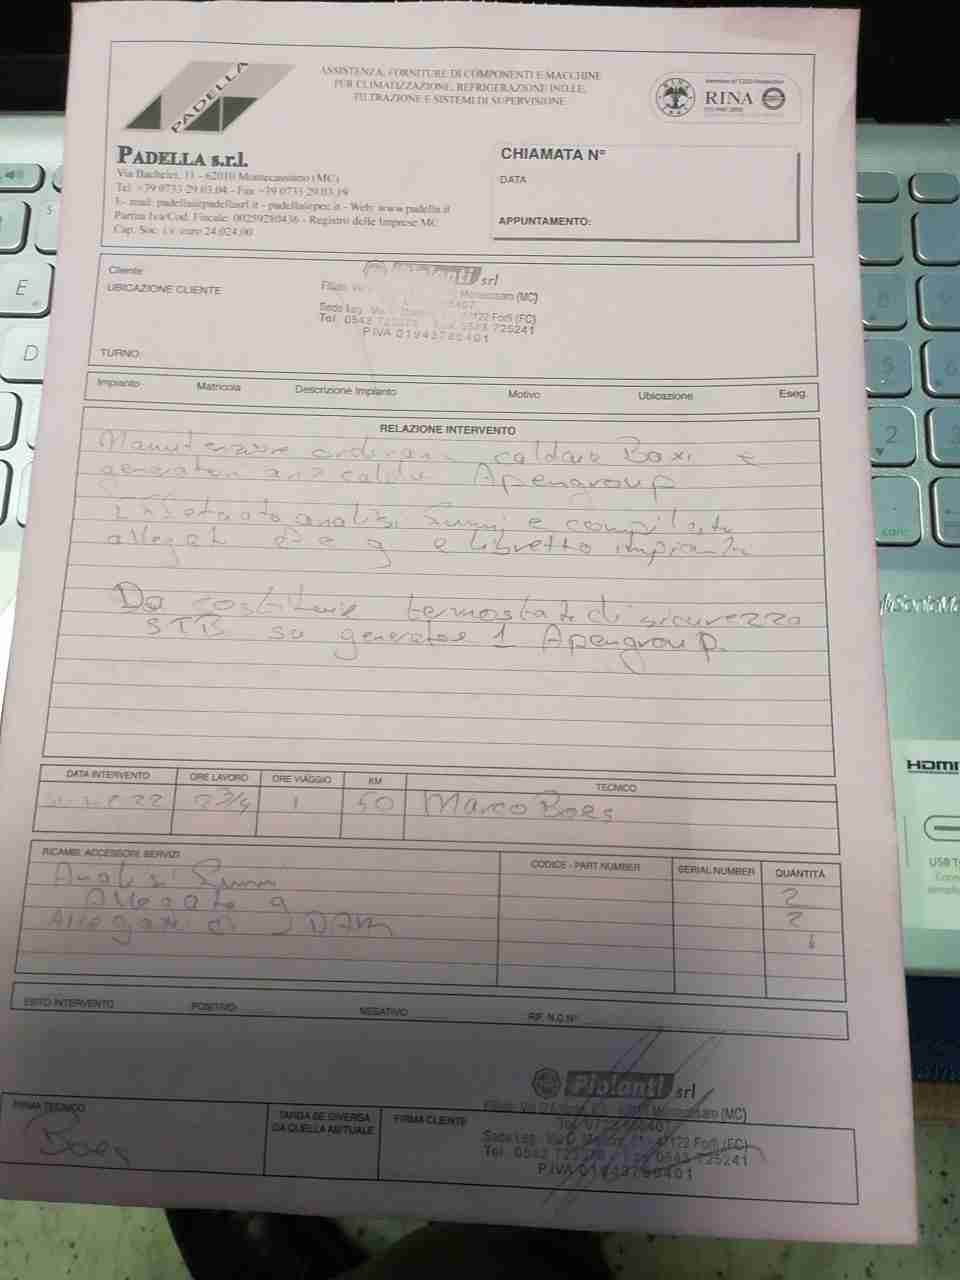 PADELLA
ASSISTENZA, FORNITURE DI COMPONENTI E MACCHINE
PER CLIMATIZZAZIONE, REFRIGERAZIONE IND.LE,
FILTRAZIONE E SISTEMI DI SUPERVISIONE
RINA
PADELLA s.r.l.
Via Bachelet, 11 - 62010 Montecassiano (MC)
Tel. +39 0733 29.03.04 - Fax +39 0733 29.03.19
E- mail: padella@padellasrl.it - padella@pec.it - Web: www.padella.it
Partita Iva/Cod. Fiscale: 00259280436 - Registro delle Imprese MC
Cap. Soc. i.v. euro 24.024,00
CHIAMATA N°
DATA
APPUNTAMENTO:
Cliente
UBICAZIONE CLIENTE
srl
(MC)
Sede Leg. 47122 Forlì (FC)
Tel. 0543 725241
P.IVA 01943780401
TURNO
Impianto Matricola Descrizione Impianto Motivo Ubicazione Eseg.
RELAZIONE INTERVENTO
Manutenzione caldaie Baxi e
generatori aria calda Apengroup
analisi fumi e compilato
allegati e g e libretto impianto
Da sostituire termostato di sicurezza
STB su generatore 1 Apengroup.
DATA INTERVENTO ORE LAVORO ORE VIAGGIO KM TECNICO
22 2 3/4 1 50 Marco Boes
RICAMBI, ACCESSORI, SERVIZI CODICE - PART NUMBER SERIAL NUMBER QUANTITÀ
Analisi fumi 2
Allegato g 2
Allegati di DAM 1
ESITO INTERVENTO POSITIVO NEGATIVO RIF. N.C.N°
Pipianti srl
Montecassiano (MC)
Sede Leg. 47122 Forlì (FC)
Tel. 0543 725241
P.IVA 01943780401
FIRMA TECNICO
TARGA SE DIVERSA
DA QUELLA ABITUALE
FIRMA CLIENTE
Boes
HDMI